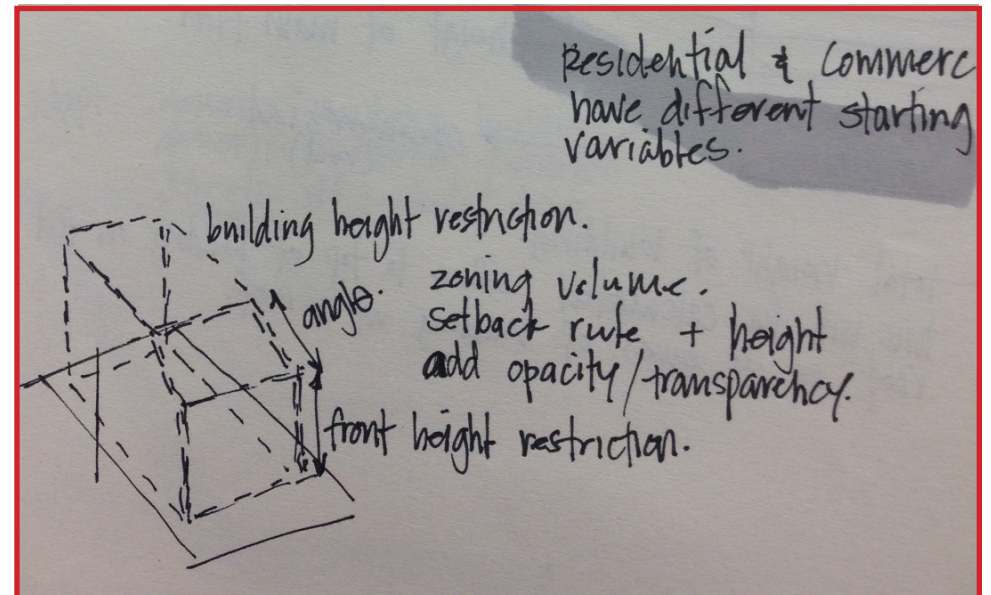 Residential & Commerc
have different starting
variables.
building height restriction.
angle.
zoning volume.
setback rule + height
add opacity/transparency.
front height restriction.